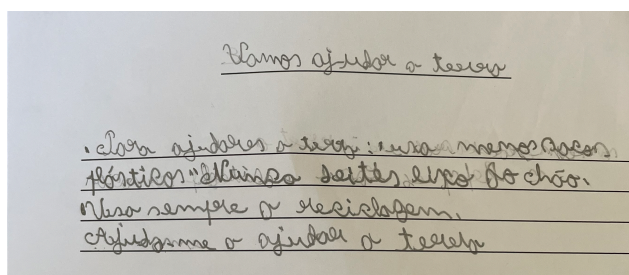 Vamos ajudar a terra
. Para ajudares a terra: usa menos sacos
plásticos. Nunca deites lixo no chão.
Usa sempre a reciclagem.
Ajuda-me a ajudar a terra